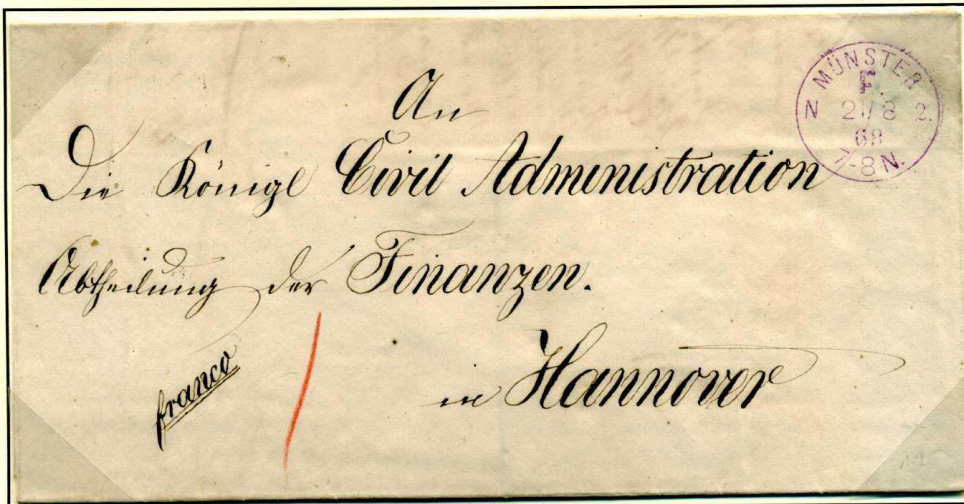 MÜNSTER
F.
N 21/8 2.
68
7-8 N.
An
Die Königl Civil Administration
Abtheilung der Finanzen.
franco
in Hannover